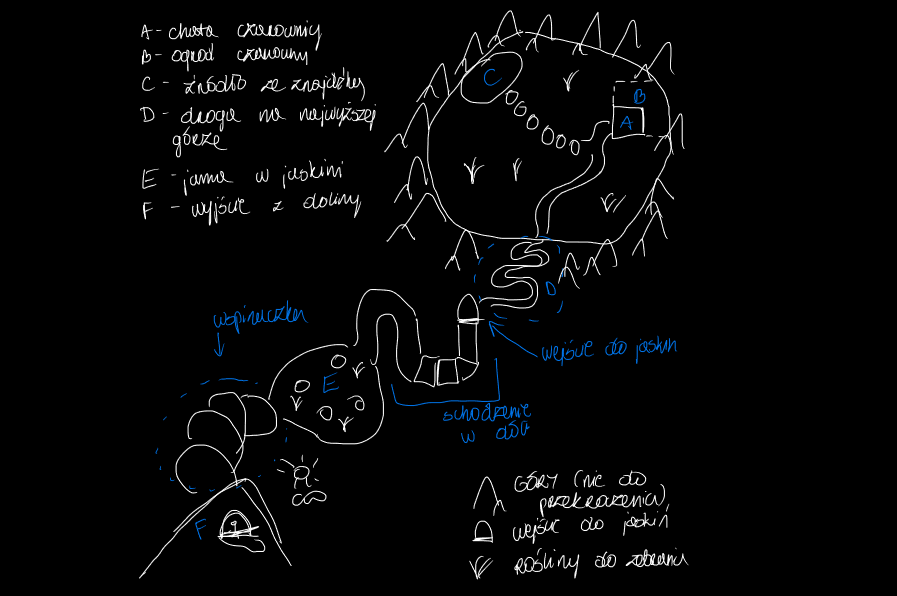 A - chata czarownicy
B - ogród czarowny
C - źródło ze znajdźką
D - droga na najwyższej
górze
E - jama w jaskini
F - wyjście z doliny
C
B
A
D
wspinaczka
wejście do jaskiń
E
schodzenie
w dół
F
GÓRY (nie do
przekroczenia)
wejście do jaskiń
rośliny do zebrania